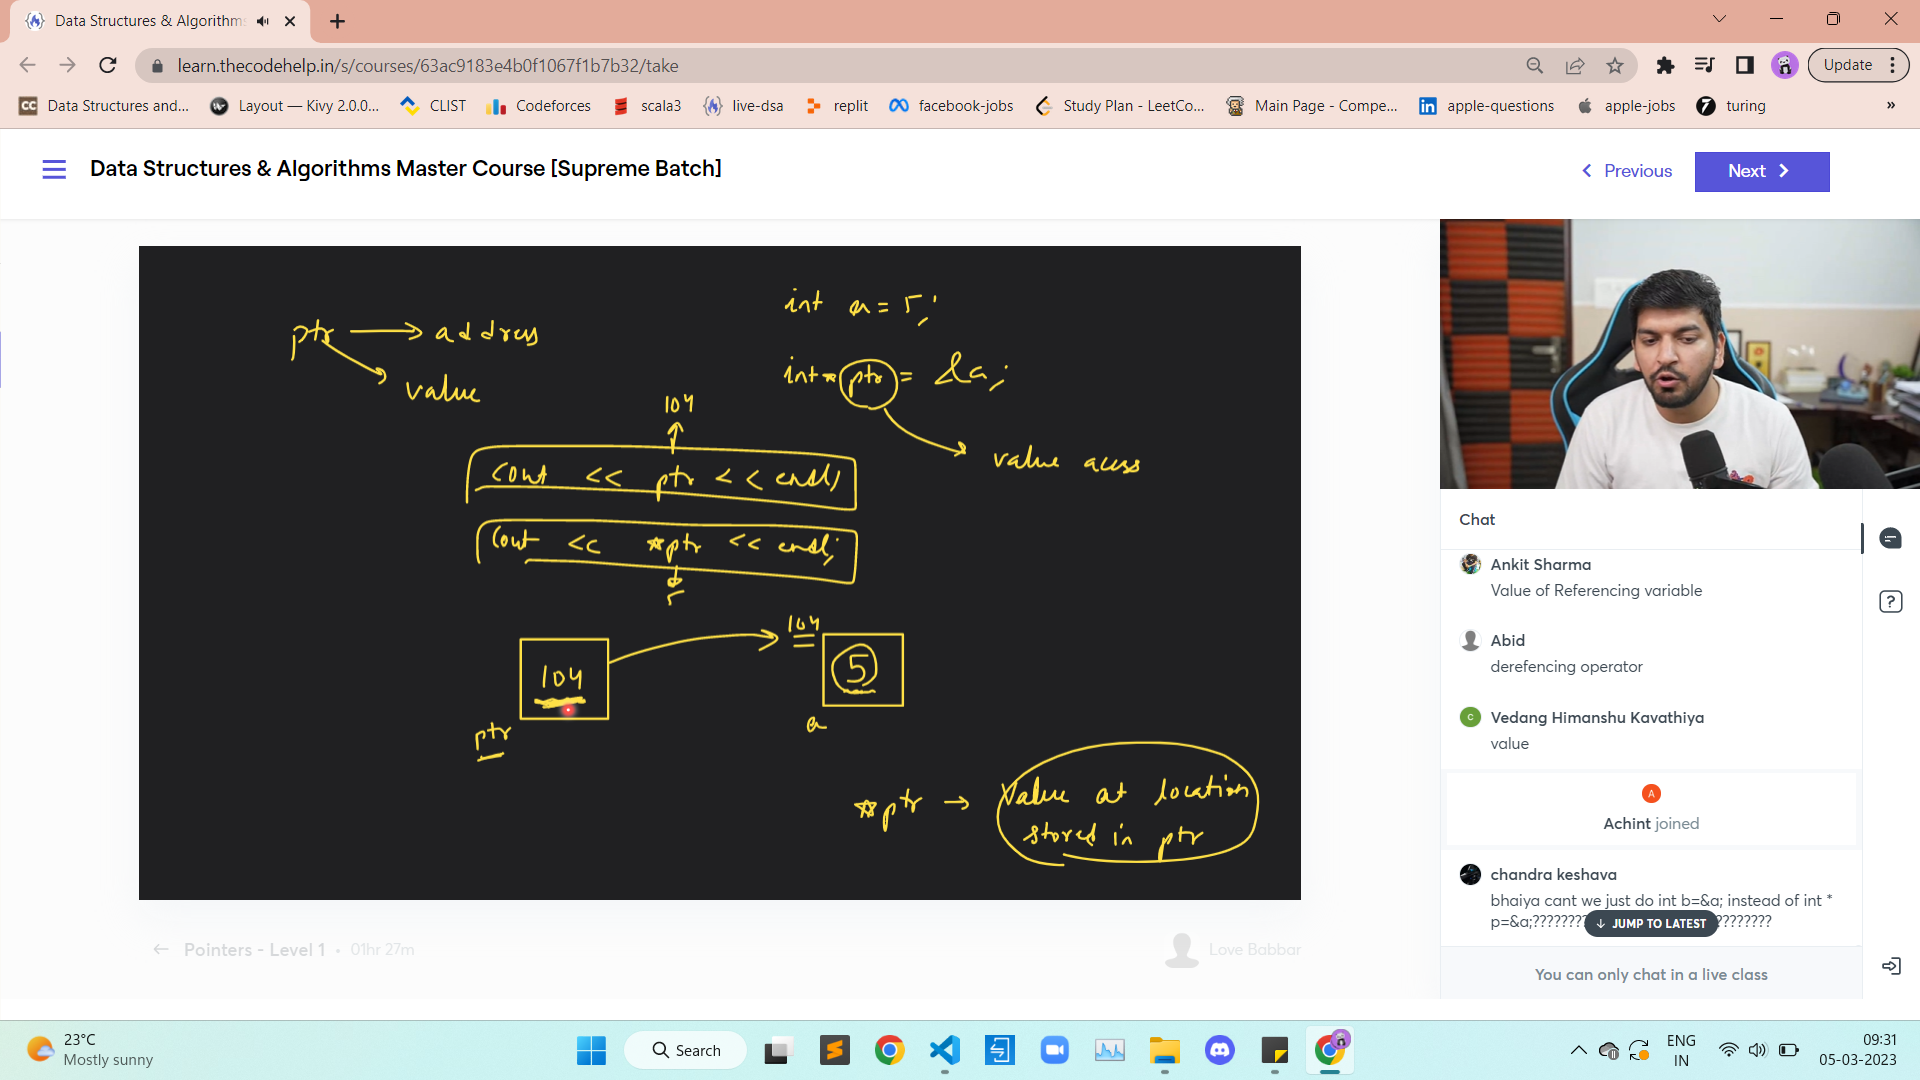 Data Structures & Algorithms
learn.thecodehelp.in/s/courses/63ac9183e4b0f1067f1b7b32/take
Update
Data Structures and...
Layout — Kivy 2.0.0...
CLIST
Codeforces
scala3
live-dsa
replit
facebook-jobs
Study Plan - LeetCo...
Main Page - Compe...
apple-questions
apple-jobs
turing
»
Data Structures & Algorithms Master Course [Supreme Batch]
Previous
Next
int a = 5;
ptr → address
value
int * ptr = &a;
104
value acess
cout << ptr << endl;
cout << *ptr << endl;
5
104
104
5
ptr
a
*ptr → Value at location
stored in ptr
Chat
Ankit Sharma
Value of Referencing variable
Abid
derefencing operator
C
Vedang Himanshu Kavathiya
value
A
Achint joined
chandra keshava
bhaiya cant we just do int b=&a; instead of int *
p=&a;????????
????????
JUMP TO LATEST
You can only chat in a live class
Pointers - Level 1 • 01hr 27m
Love Babbar
23°C
Mostly sunny
Search
ENG
IN
09:31
05-03-2023